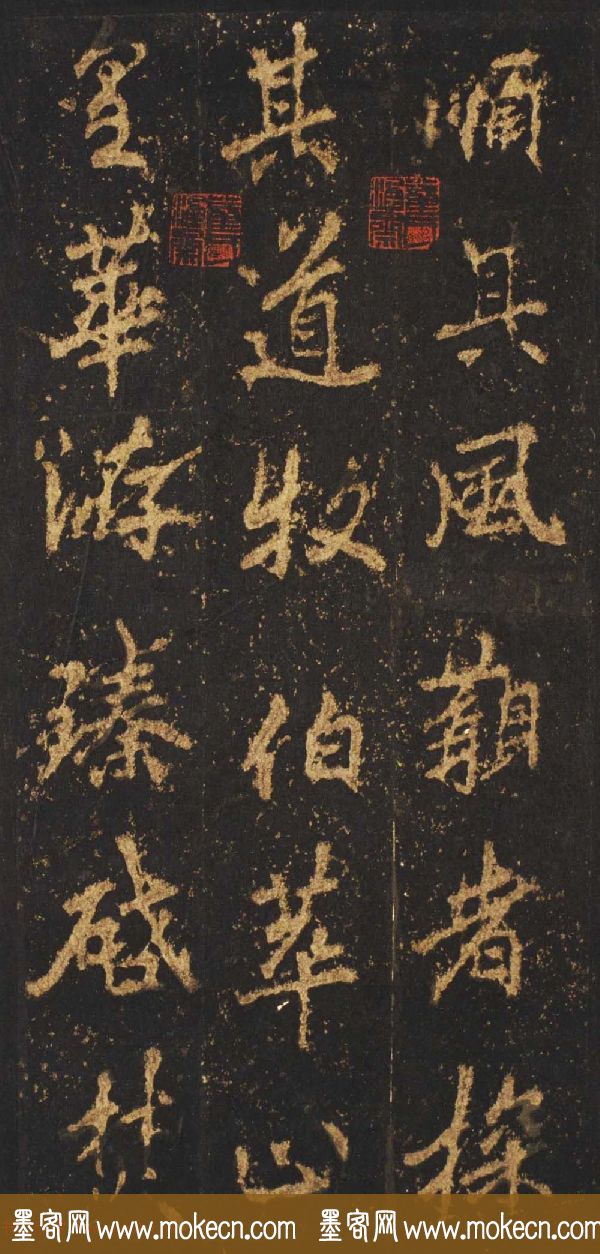 順其風觀者探
其道牧伯萃止
皇華游臻
墨客网 www.mokecn.com 墨客网 www.mokecn.com